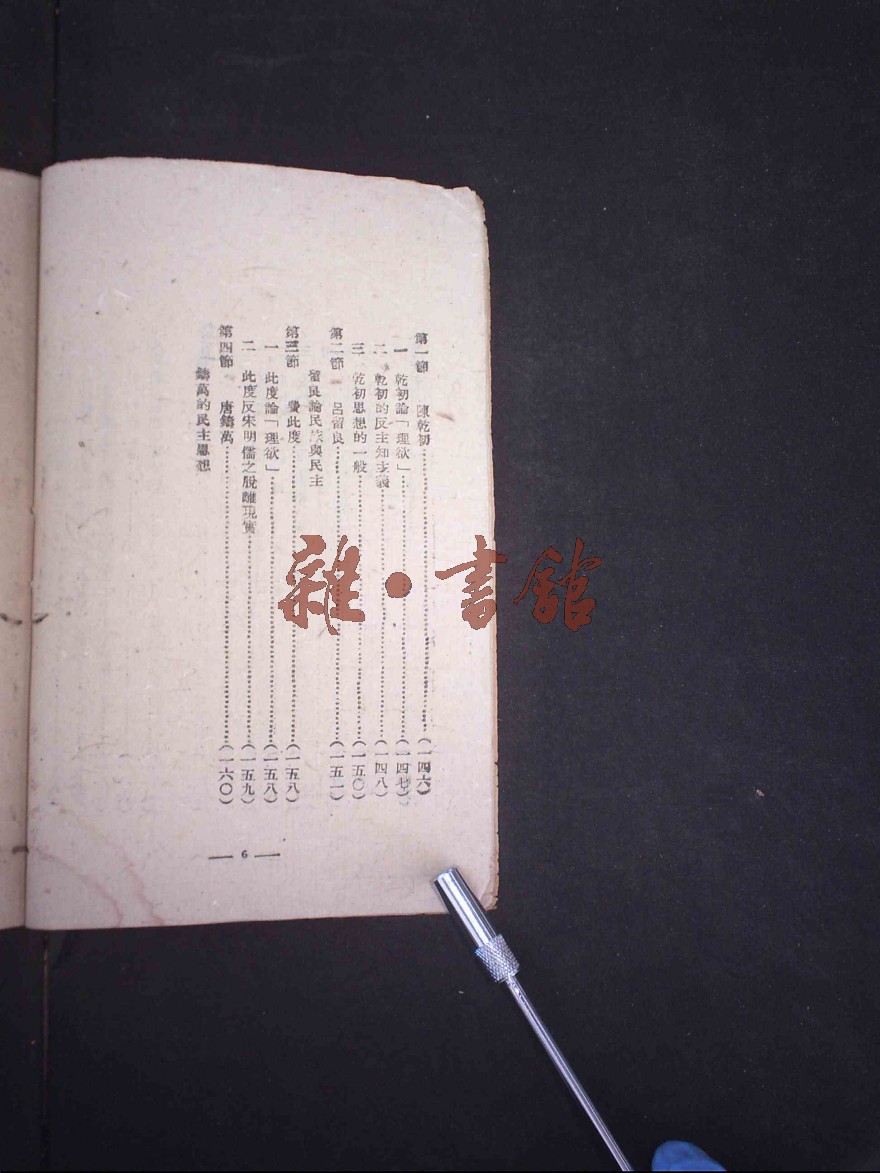 第一節 陳乾初……(一四六)
一 乾初論「理欲」……(一四七)
二 乾初的反主知主義……(一四八)
三 乾初思想的一般……(一五〇)
第二節 呂留良……(一五一)
留良論民族與民主
第三節 費此度……(一五八)
一 此度論「理欲」……(一五八)
二 此度反宋明儒之脫離現實……(一五九)
第四節 唐鑄萬……(一六〇)
鑄萬的民主思想
— 6 —
雜·書館